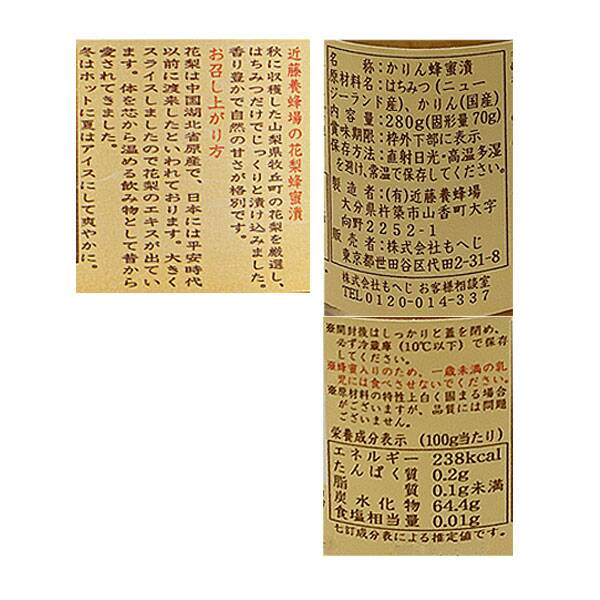 近藤養蜂場の花梨蜂蜜漬
秋に収穫した山梨県牧丘町の花梨を厳選し、
はちみつだけでじっくりと漬け込みました。
香り豊かで自然の甘さが格別です。
お召し上がり方
花梨は中国湖北省原産で、日本には平安時代
以前に渡来したといわれております。大きく
スライスしましたので花梨のエキスが出てい
ます。体を芯から温める飲み物として昔から
愛されてきました。
冬はホットに夏はアイスにして爽やかに。
名称:かりん蜂蜜漬
原材料名:はちみつ(ニュー
ジーランド産)、かりん(国産)
内容量:280g(固形量70g)
賞味期限:枠外下部に表示
保存方法:直射日光・高温多湿
を避け、常温で保存してください。
製造者:(有)近藤養蜂場
大分県杵築市山香町大字
向野2252-1
販売者:株式会社もへじ
東京都世田谷区代田2-31-8
株式会社もへじ お客様相談室
TEL0120-014-337
※開封後はしっかりと蓋を閉め、
必ず冷蔵庫(10℃以下)で保存
してください。
※蜂蜜入りのため、一歳未満の乳
児には食べさせないでください。
※原材料の特性上白く固まる場合
がございますが、品質には問題
ございません。
栄養成分表示(100g当たり)
エネルギー 238kcal
たんぱく質 0.2g
脂質 0.1g未満
炭水化物 64.4g
食塩相当量 0.01g
七訂成分表による推定値です。